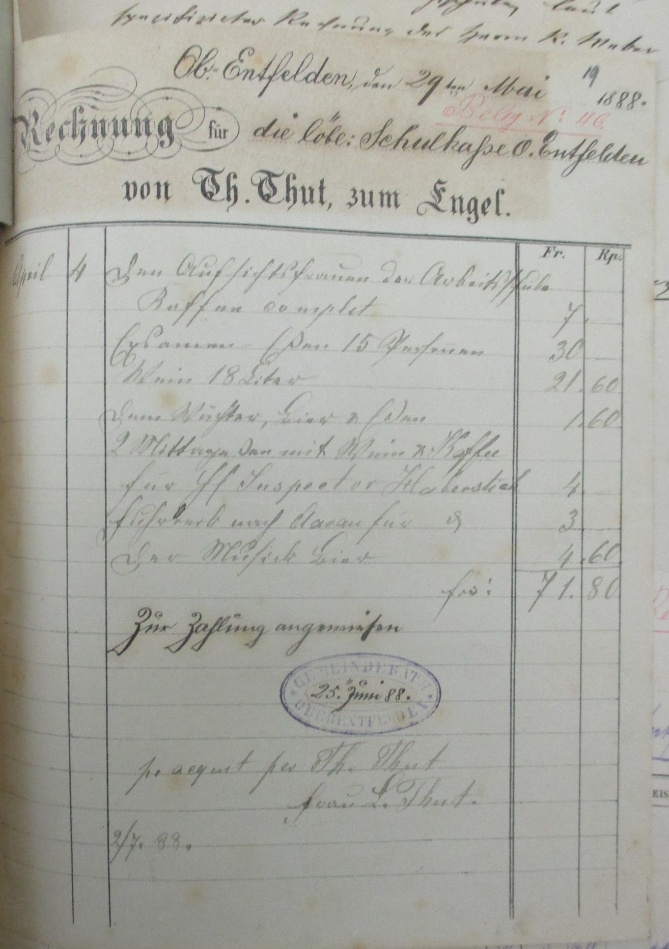 laut
spezifizirter Rechnung des Herrn R. Weber
Ob.-Entfelden, den 29ten Mai 19 1888.
Beleg No. 46.
Rechnung für die löbl: Schulkasse O. Entfelden
von Th. Thut, zum Engel.
Fr. Rp.
April 4 Den Aufsichtsfrauen der Arbeitsschule
Kaffee complet 7.
Exsamen Essen 15 Personen 30
Wein 18 Liter 21.60
Dem Wächter, Bier & Essen 1.60
2 Mittagessen mit Wein & Kaffee
für HH Inspector Haberstich 4.
Fuhrwerk nach Aarau für d 3
Der Musick Bier 4.60
frs: 71.80
Zur Zahlung angewiesen
GEMEINDERATH
25. Juni 88.
OBERENTFELDEN
pr acquit per Th. Thut
Frau L. Thut.
2/7. 88.